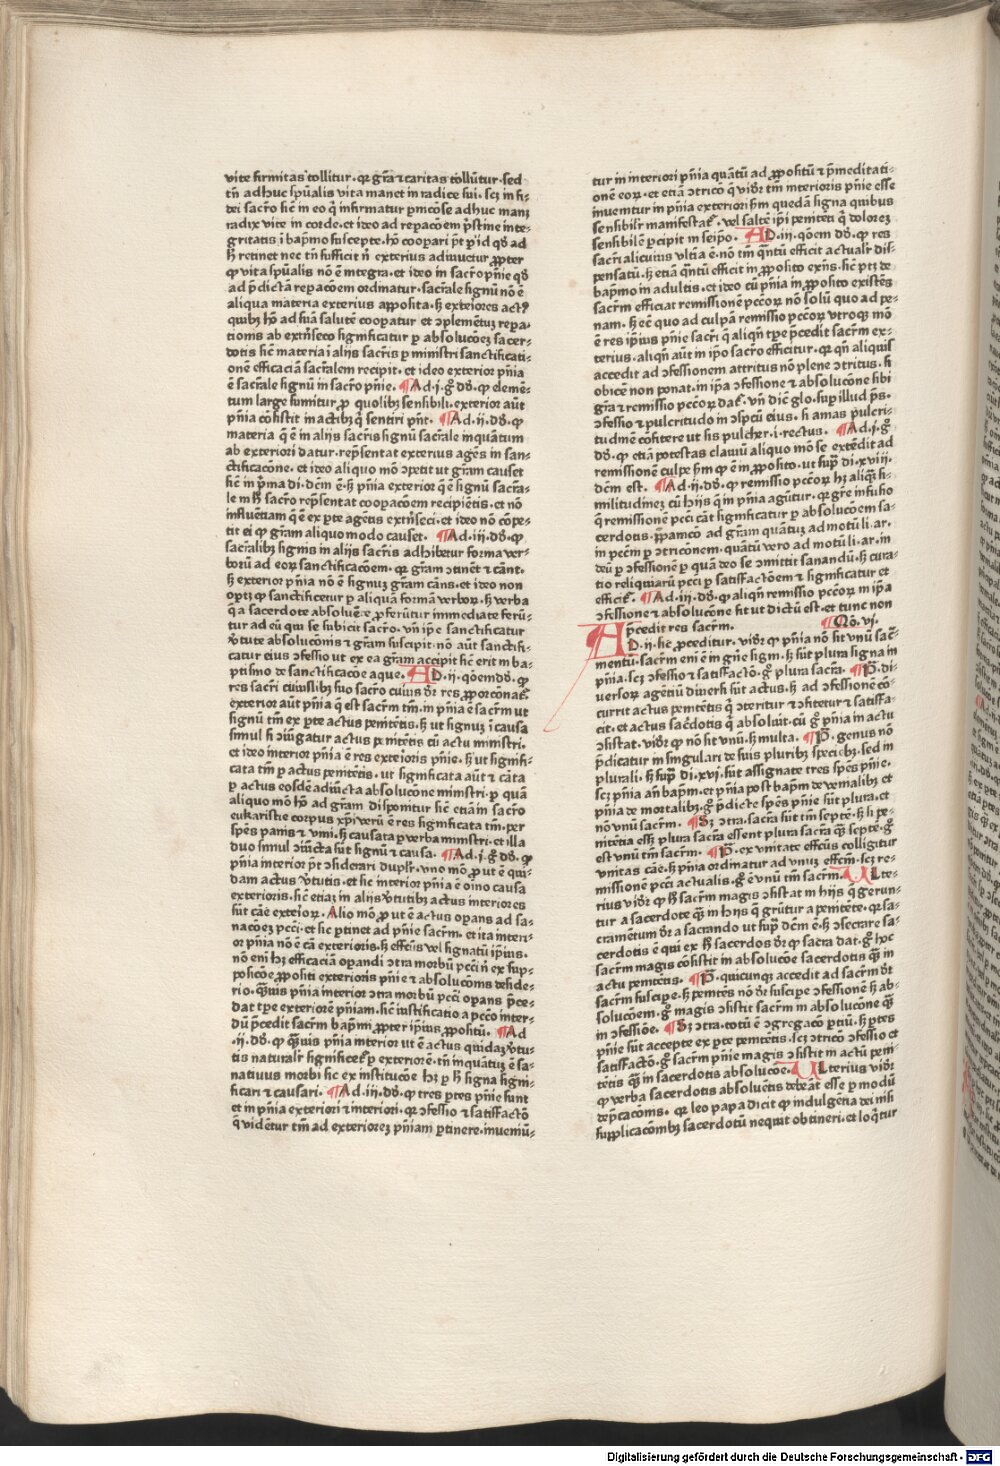 vite firmitas tollitur. qr gr̄a ⁊ caritas tollūtur. sed
tn̄ adhuc sp̄ualis vita manet in radice sui. scꝫ in fi-
dei sacro hc̄ in eo q̄ infirmatur
radix vite in corde. et ideo ad repacōem p̄stine inte-
gritatis i bapm̄o suscepte. hō coopari pt̄ ad
ꝙ vita sp̄ualis nō ē integra. et ideo in sacro pn̄ie
ad p̄dictā repacōem ordinatur. sacrale signū nō ē
aliqua materia exterius apposita. sꝫ exteriores actꝰ
quibꝫ hō ad suā salutē coopatur et ↄplemētuꝫ repa-
tionis ab extrīseco significatur ꝑ absolucōeꝫ sacer-
dotis sic̄ materia i alijs sacris ꝑ ministri sanctificati-
onē efficaciā sacralem recipit. et ideo exterior pn̄ia
ē sacrale signū in sacro pn̄ie. ¶ Ad .j. gͦ ds̄. ꝙ elemē-
tum large sumitur ꝓ quolibꝫ sensibili. exterior aūt
pn̄ia cōsistit in actibꝫ q̄ sentiri pn̄t. ¶ Ad .ij. ds̄. ꝙ
materia q̄ ē in alijs sacris signū sacrale inquātum
ab exteriori datur. rep̄sentat exterius agēs in san-
ctificacōne. et ideo aliquo mō ↄpetit ut gr̄am causet
sic̄ in p̄ma di. dcm̄ ē. sꝫ pn̄ia exterior q̄ ē signū sacra-
le in hͦ sacro rep̄sentat coopacōem recipiētis. et nō
influentiam q̄ ē ex ꝑte agētis extrīseci. et ideo nō cōpe-
tit ei ꝙ gr̄am aliquo modo causet. ¶ Ad .iij. ds̄. ꝙ
sacralibꝫ signis in alijs sacris adhibetur forma ver-
borū ad eoꝝ sanctificacōem. qr gr̄am ↄtinēt ⁊ cān̄t.
sꝫ exterior pn̄ia nō ē signuꝫ gr̄am cān̄s. et ideo non
optꝫ ꝙ sanctificetur ꝑ aliquā formā verboꝝ. sꝫ verba
q̄ a sacerdote absoluēte ꝓferūtur immediate ferū-
tur ad eū qui se subicit sacro. vn̄ ip̄e sanctificatur
ꝟtute absolucōnis ⁊ gr̄am suscipit. nō aūt sanctifi-
catur eius ↄfessio ut ex ea gr̄am accipit sic̄ erit in ba-
ptismo de sanctificacōe aque. AD .ij. qōem ds̄. ꝙ
res sacri cuiuslibꝫ suo sacro cuius dr̄ res ꝓporcōnaꝉ.
exterior aūt pn̄ia q̄ est sacrm̄ tm̄. in pn̄ia ē sacrm̄ ut
signū tm̄ ex ꝑte actus penitētis. sꝫ ut signuꝫ ⁊ causa
simul si ↄiūgatur actus penitētis cū actu ministri.
et ideo interior pn̄ia ē res exterioris pn̄ie. sꝫ ut signifi-
cata tm̄ ꝑ actus penitētis. ut significata aūt ⁊ cāta
ꝑ actus eosdē adiūcta absolucōne ministri. ꝑ quā
aliquo mō hō ad gr̄am disponitur sic̄ etiā in sacro
eukaristie corpus xp̄i verū ē res significata tm̄. per
sp̄es panis ⁊ vini. sꝫ causata ꝑ verba ministri. et illa
duo simul ↄiūcta sūt signū ⁊ causa. ¶ Ad .j. gͦ ds̄. ꝙ
pn̄ia interior pt̄ ↄsiderari duplr̄. vno mō ꝓ ut ē qui-
dam actus ꝟtutis. et sic interior pn̄ia ē oīno causa
exterioris. sic̄ etiaꝫ in alijs ꝟtutibꝫ actus interiores
sūt cāe exterioꝝ. Alio mō ꝓ ut ē actus opans ad sa-
nacōeꝫ pcc̄i. et sic ꝑtinet ad pn̄ie sacrm̄. et ita interi-
or pn̄ia nō ē cā exterioris. sꝫ effcūs vel signatū ip̄ius.
nō eni hꝫ efficaciā opandi ↄtra morbū pcc̄i n̄ ex sup-
posicōe ꝓpositi exterioris pn̄ie ⁊ absolucōnis deside-
rio. qͣꝫuis pn̄ia interior ↄtra morbū pcc̄i opans p̄ce-
dat tꝑe exteriorē pn̄iam. sic̄ iustificatio a pecc̄o inter-
dū p̄cedit sacrm̄ bapm̄i ꝓpter ip̄ius ꝓpositū. ¶ Ad
.ij. ds̄. ꝙ qͣꝫuis pn̄ia interior ut ē actus quidaꝫ ꝟtu-
tis naturalr̄ significetꝉ ꝑ exteriorē. tn̄ inquātuꝫ ē sa-
natiuus morbi sic ex institucōe hꝫ ꝑ hͦ signa signi-
ficari ⁊ causari. ¶ Ad .iij. ds̄. ꝙ tres ꝑtes pn̄ie sunt
et in pn̄ia exteriori ⁊ interiori. qr ↄfessio ⁊ satisfactō
q̄ vidētur tm̄ ad exterioreꝫ pn̄iam ꝑtinere. inueniū-
tur in interiori pn̄ia quātū ad ꝓpositū ⁊ p̄meditati-
onē eoꝝ. et etiā ↄtricō q̄ vidr̄ tm̄ interioris pn̄ie esse
inuenitur in pn̄ia exteriori sm̄ quedā signa quibus
sensibilr̄ manifestaꝉ. vel saltē ip̄i penitēti q̄ dolorez
sensibilē ꝑcipit in seip̄o. AD .iij. qōem ds̄. ꝙ res
sacri alicuius vltīa ē. nō tm̄ qn̄tū efficit actualr̄ dis-
pensatū. sꝫ etiā qn̄tū efficit in ꝓposito exn̄s. sic̄ ptꝫ de
bapm̄o in adultis. et ideo cū pn̄ia in ꝓposito existēs
sacrm̄ efficiat remissionē pcc̄oꝝ nō solū quo ad pe-
nam. sꝫ ec̄ quo ad culpā remissio pcc̄oꝝ vtroqꝫ mō
ē res ip̄ius pn̄ie sacri q̄ aliqn̄ tꝑe p̄cedit sacrm̄ ex-
terius. aliqn̄ aūt in ip̄o sacro efficitur. qr qn̄ aliquis
accedit ad ↄfessionem attritus nō plene ↄtritus. si
obicē non ponat. in ip̄a ↄfessione ⁊ absolucōne sibi
gr̄a ⁊ remissio pcc̄oꝝ daꝉ. vn̄ dic̄ glo. sup illud ps̄.
ↄfessio ⁊ pulcritudo in ↄspcū eius. si amas pulcri-
tudinē cōfitere ut sis pulcher .i. rectus. ¶ Ad .j. gͦ
ds̄. ꝙ etiā potestas clauiū aliquo mō se extēdit ad
remissionē culpe sm̄ ꝙ ē in ꝓposito. ut supͣ di. xviij.
dcm̄ est. ¶ Ad .ij. ds̄. ꝙ remissio pcc̄oꝝ hꝫ aliqͣꝫ si-
militudineꝫ cū hijs q̄ in pn̄ia agūtur. qr gr̄e infusio
q̄ remissionē pcc̄i cāt significatur ꝑ absolucōem sa-
cerdotis. ad gr̄am quātuꝫ ad motū li. ar.
in pecc̄m ꝑ ↄtriconem. quātū vero ad motū li. ar. in
deū ꝑ ↄfessionē ꝑ quā deo se ↄmittit sanandū. sꝫ cura-
tio reliquiarū pcc̄i ꝑ satisfactōem ⁊ significatur et
efficiꝉ. ¶ Ad .iij. ds̄. ꝙ aliqn̄ remissio pcc̄oꝝ in ip̄a
ↄfessione ⁊ absolucōne sit ut dictū est. et tunc non
p̄cedit res sacrm̄. ¶ Qō. vj.
AD .ij. sic ꝓceditur. vidr̄ ꝙ pn̄ia nō sit vnū sac̄-
mentū. sacrm̄ eni ē in gn̄e signi. sꝫ sūt plura signa in
pn̄ia. scꝫ ↄfessio ⁊ satisfactō. gͦ plura sacra. ¶ P̄. di-
versoꝝ agētiū diuersi sūt actus. sꝫ ad ↄfessionē cō-
currit actus penitētis q̄ ↄteritur ⁊ ↄfitetur ⁊ satisfa-
cit. et actus sac̄dotis q̄ absoluit. cū gͦ pn̄ia in actu
ↄsistat. vidr̄ ꝙ nō sit vnū. sꝫ multa. ¶ P̄. genus nō
p̄dicatur in singulari de suis pluribꝫ speciebꝫ. sed in
plurali. sꝫ supͣ di. xvi. sūt assignate tres sp̄es pn̄ie.
scꝫ pn̄ia an̄ bapm̄. et pn̄ia post bapm̄ de venialibꝫ et
pn̄ia de mortalibꝫ. gͦ p̄dicte sp̄es pn̄ie sūt plura. et
nō vnū sacrm̄. ¶ Sꝫ ↄtra. sacra sūt tm̄ septē. sꝫ si pe-
nitētia essꝫ plura sacra essent plura sacra qͣꝫ septē. gͦ
est vnū tm̄ sacrm̄. ¶ P̄. ex vnitate effcūs colligitur
vnitas cāe. sꝫ pn̄ia ordinatur ad vnuꝫ effcm̄. scꝫ re-
missionē pcc̄i actualis. gͦ ē vnū tm̄ sacrm̄. Vlte-
rius vidr̄ ꝙ hͦ sacrm̄ magis ↄsistat in hijs q̄ gerun-
tur a sacerdote qͣꝫ in hijs q̄ grūtur a penitēte. qr sa-
cramētum dr̄ a sacrando ut supͣ dcm̄ ē. sꝫ ↄsecrare sa-
cerdotis ē qui ex hͦ sacerdos dr̄ ꝙ sacra dat. gͦ hoc
sacrm̄ magis cōsistit in absolucōe sacerdotis qͣꝫ in
actu penitētis. ¶ P̄. quicunqꝫ accedit ad sacrm̄ dr̄
sacrm̄ suscipe. sꝫ penitēs nō dr̄ suscipe ↄfessionē sꝫ ab-
solucōem. gͦ magis ↄsistit sacrm̄ in absolucōne qͣꝫ
in ↄfessiōe. ¶ Sꝫ ↄtra. totū ē ↄgregacō ꝑtiū. sꝫ ꝑtes
pn̄ie sūt accepte ex ꝑte penitētis. scꝫ ↄtricō ↄfessio et
satisfactō. gͦ sacrm̄ pn̄ie magis ↄsistit in actū peni-
tētis qͣꝫ in sacerdotis absolucōe. Vlterius vidr̄
ꝙ verba sacerdotis absoluētis debeāt esse ꝑ modū
dep̄cacōnis. qr leo papa dicit ꝙ indulgētia dei nisi
supplicacōnibꝫ sacerdotū nequit obtineri. et loq̄tur
Digitalisierung gefördert durch die Deutsche Forschungsgemeinschaft - DFG